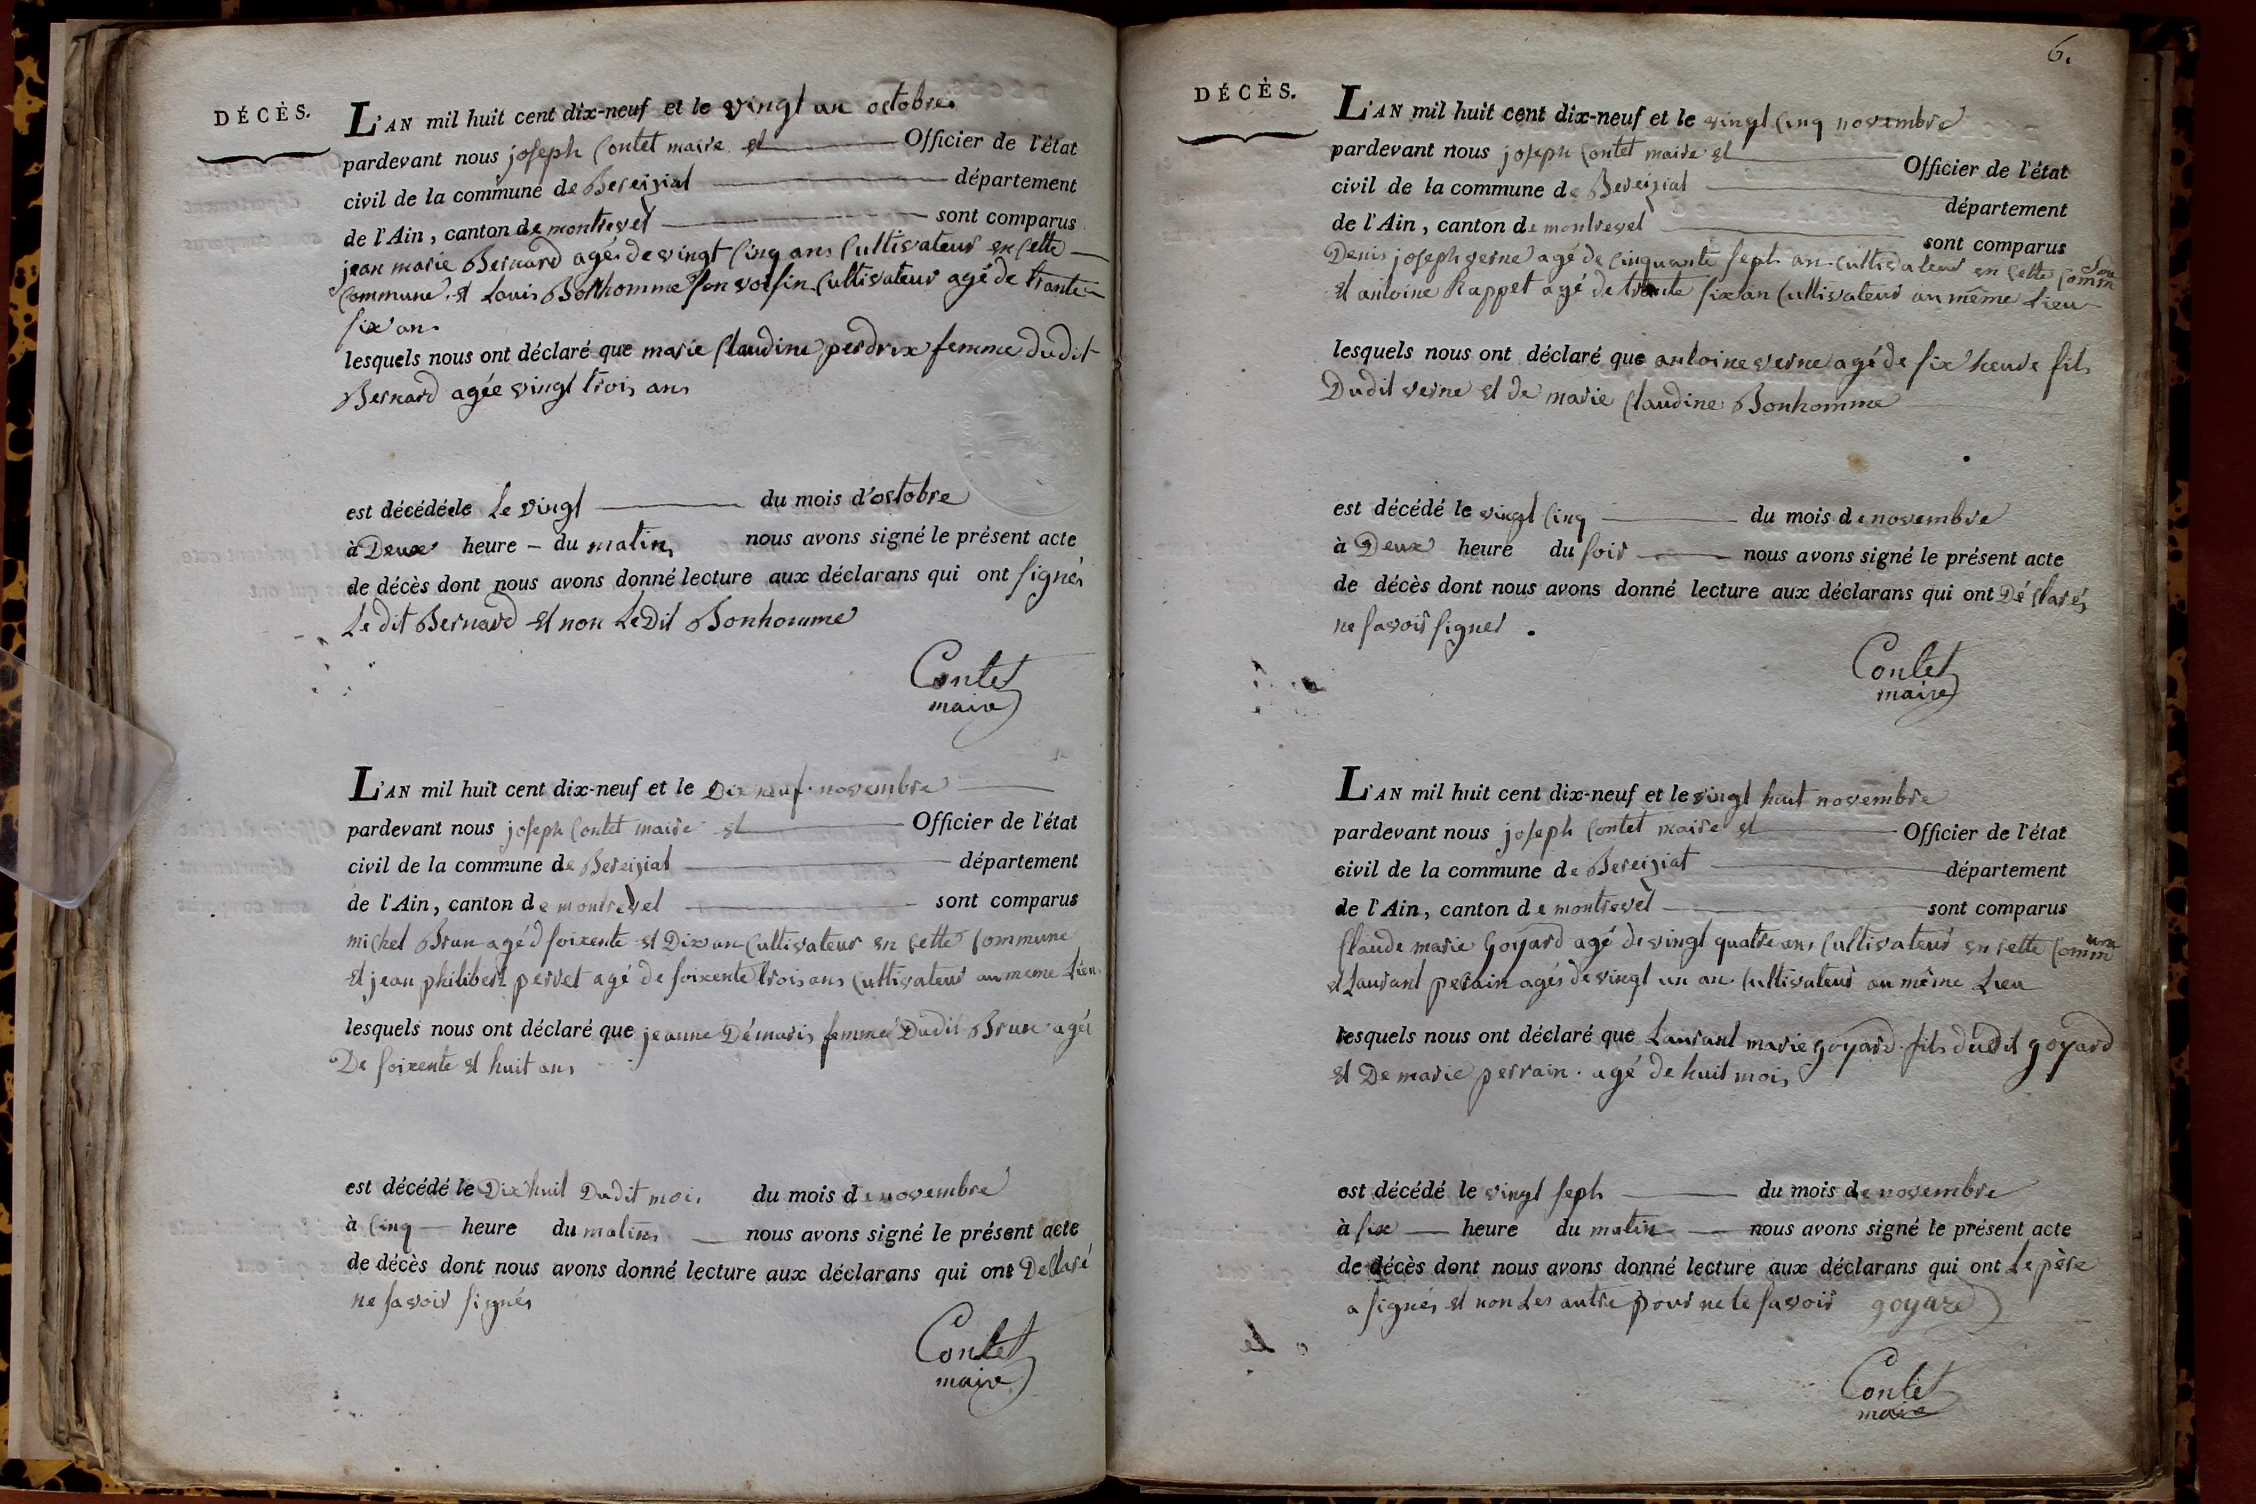 DÉCÈS.
L'AN mil huit cent dix-neuf et le vingt un octobre.
pardevant nous joseph Contet maire et Officier de l'état
civil de la commune de Bereiziat département
de l'Ain, canton de montrevel sont comparus
jean marie Bernard agés de vingt Cinq ans Cultivateur en Cette
Commune. et Louis Bonhomme son voisin Cultivateur agé de trante
six ans
lesquels nous ont déclaré que marie Claudine perdrix femme dudit
Bernard agée vingt trois ans
est décédéele Le vingt du mois d'octobre
à Deux heure - du matin, nous avons signé le présent acte
de décès dont nous avons donné lecture aux déclarans qui ont signés
Le dit Bernard et non Le Dit Bonhomme
Contet
maire
L'AN mil huit cent dix-neuf et le Dix neuf novembre
pardevant nous joseph Contet maire et Officier de l'état
civil de la commune de Bereiziat département
de l'Ain, canton de montrevel sont comparus
michel Brun agé d soixente et Dix an Cultivateur en Cette Commune
et jean philibert perret agé de soixente trois ans Cultivateur au meme Lieu
lesquels nous ont déclaré que jeanne Démaris femme Dudit Brun agée
De soixente et huit ans
est décédé le Dix huit Dudit mois du mois de novembre
à Cinq heure du matin nous avons signé le présent acte
de décès dont nous avons donné lecture aux déclarans qui ont Déclaré
ne savoir signés
Contet
maire
6.
DÉCÈS.
L'AN mil huit cent dix-neuf et le vingt Cinq novembre
pardevant nous joseph Contet maire et Officier de l'état
civil de la commune de Bereiziat département
de l'Ain, canton de montrevel sont comparus
Denis joseph verne agé de Cinquante sept an Cultivateur en Cette Comm
et antoine Rappet agé de trente six an Cultivateur au même Lieu
lesquels nous ont déclaré que antoine verne agé de six heure fils
Dudit verne et de marie Claudine Bonhomme
est décédé le vingt Cinq du mois de novembre
à Deux heure du soir nous avons signé le présent acte
de décès dont nous avons donné lecture aux déclarans qui ont Déclarés
ne savoir signer.
Contet
maire
L'AN mil huit cent dix-neuf et le vingt huit novembre
pardevant nous joseph Contet maire et Officier de l'état
civil de la commune de Bereiziat département
de l'Ain, canton de montrevel sont comparus
Claude marie Goyard agé de vingt quatre ans Cultivateur en Cette Commune
et Laurant perrain agés de vingt un an Cultivateur au même Lieu
lesquels nous ont déclaré que Laurant marie goyard fils dudit goyard
et De marie perrain. agé de huit mois
est décédé le vingt seph du mois de novembre
à six heure du matin nous avons signé le présent acte
de décès dont nous avons donné lecture aux déclarans qui ont Le père
a signés et non Les autre pour ne le savoir goyard
Contet
maire